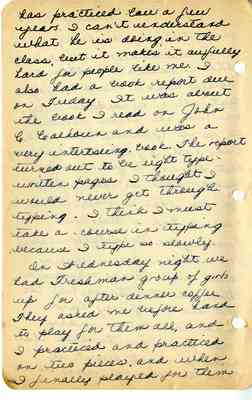 has practiced law a few
years. I can't understand
what he is doing in the
class, but it makes it awfully
hard for people like me. I
also had a book report due
on Friday. It was about
the book I read on John
C. Calhoun and was a
very interesting book. The report
turned out to be eight type-
written pages. I thought I
would never get through
typing. I think I must
take a course in typping
because I type so slowly.
On Wednesday night we
had Freshman group of girls
up for after dinner coffee
They asked me before hand
to play for them all, and
I practiced and practiced
on two pieces, and when
I finally played for them